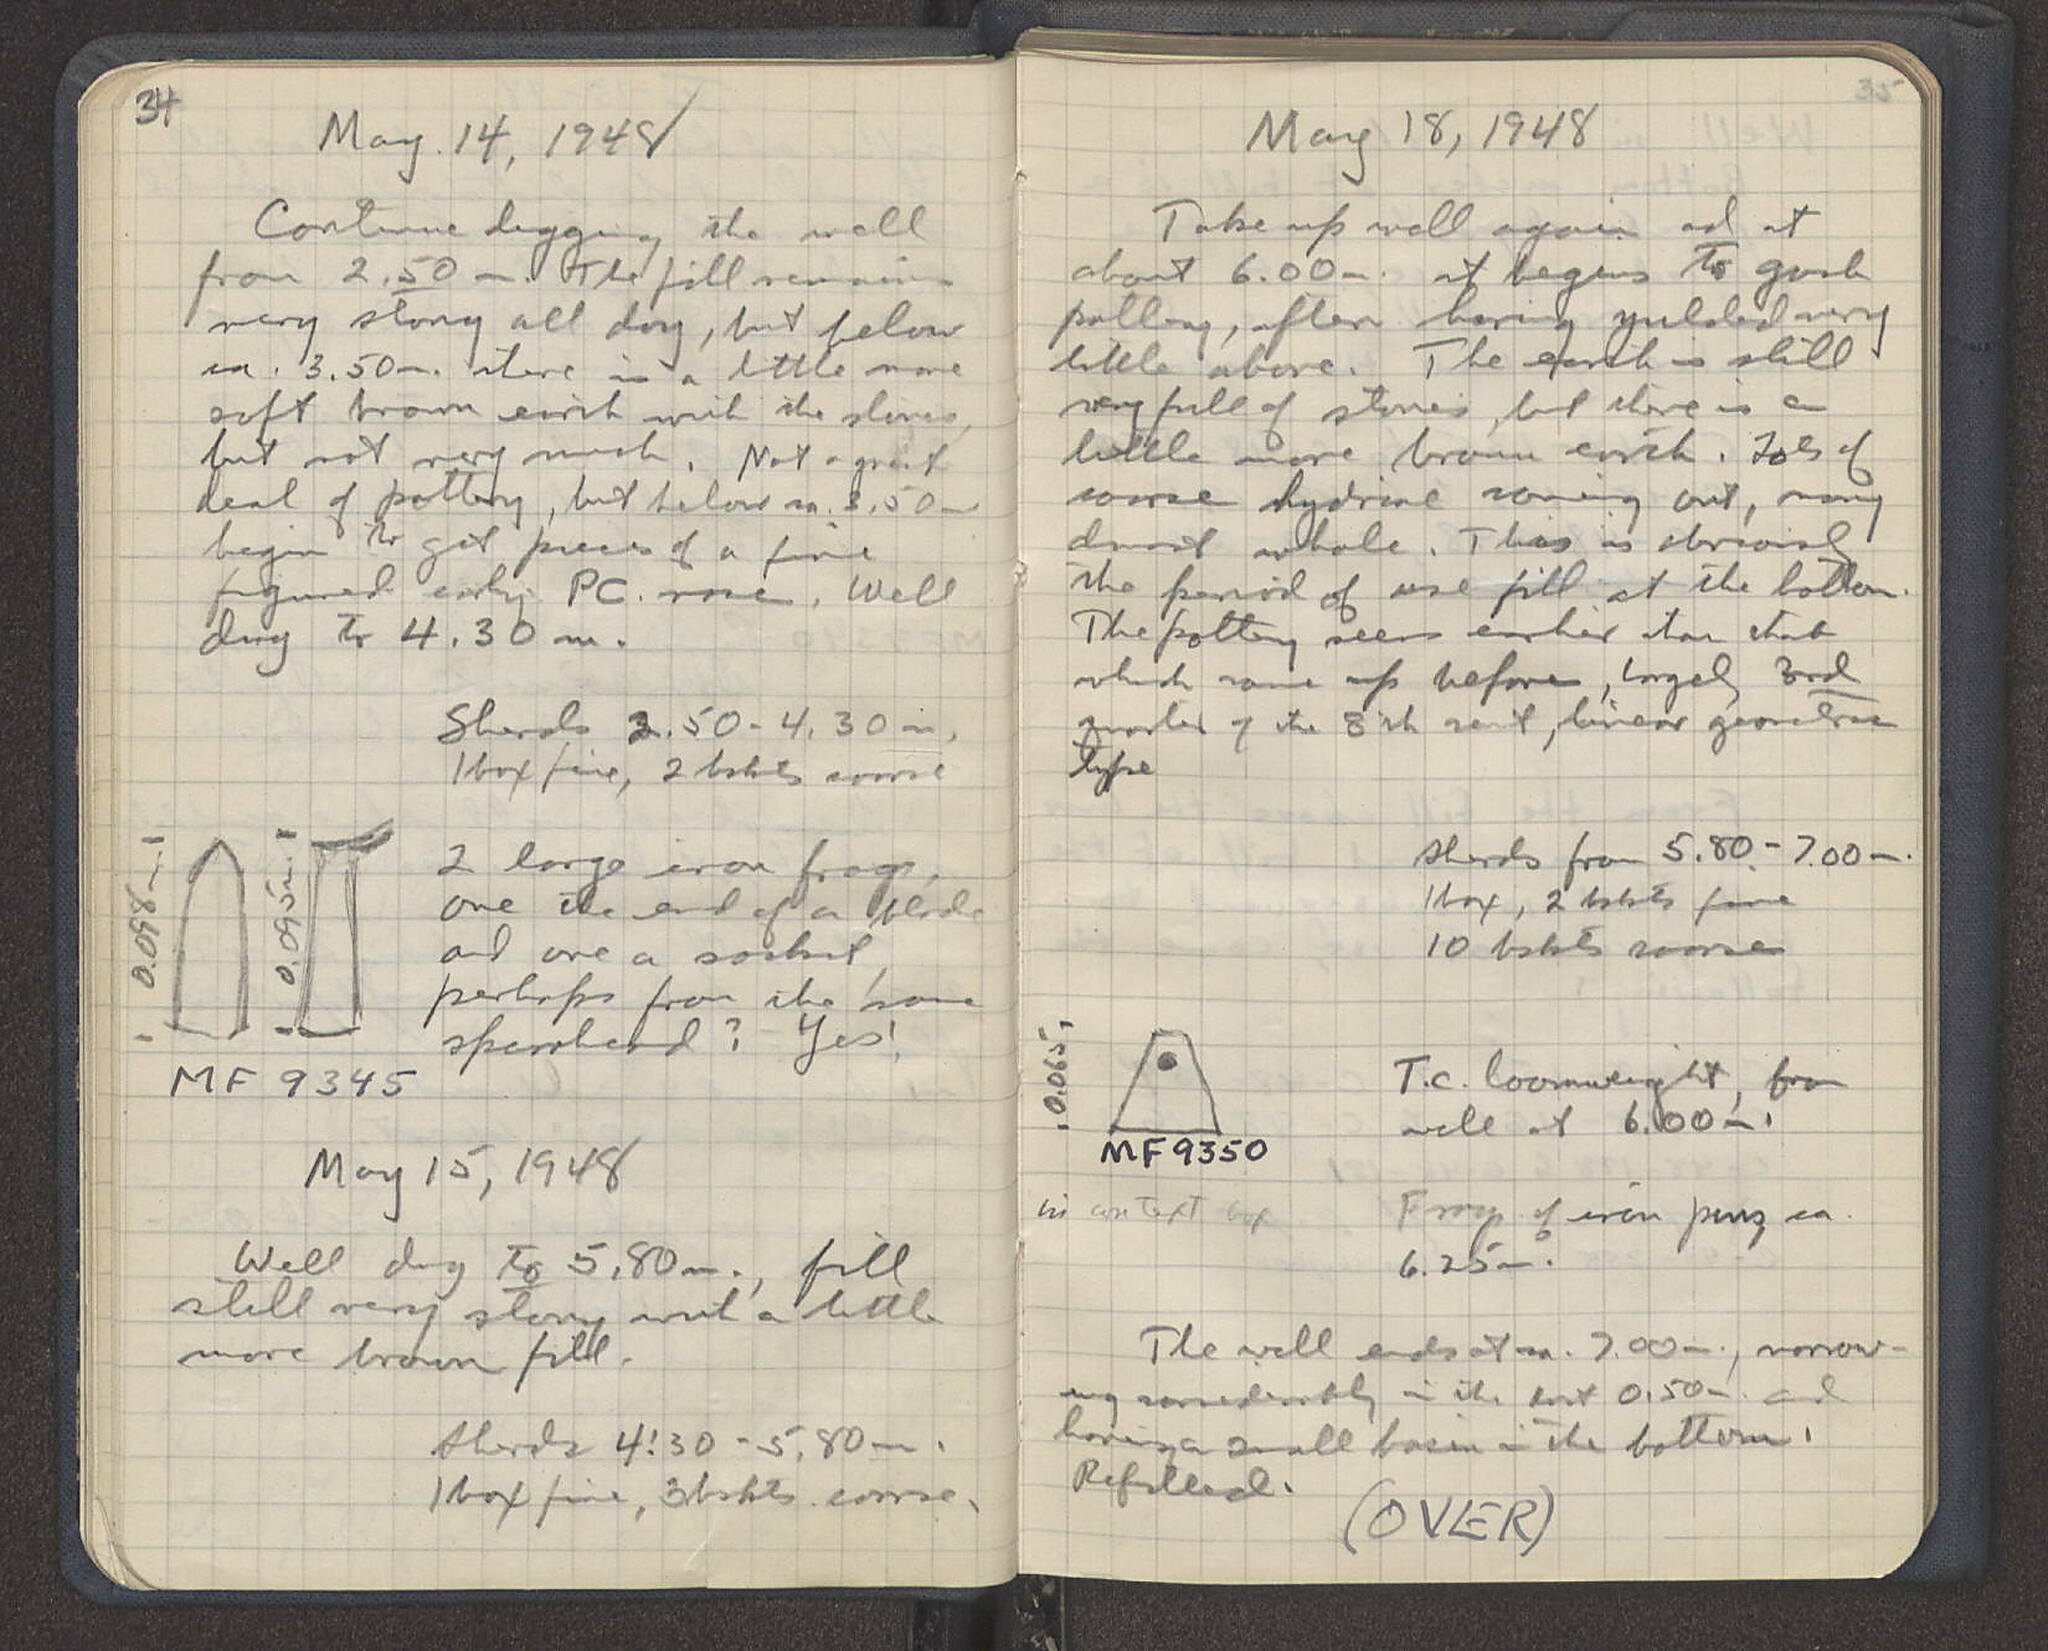 34
May 14, 1948
Continue digging the well
from 2.50 m. The fill remains
very stony all day, but below
ca. 3.50 m. there is a little more
soft brown earth with the stones,
but not very much. Not a great
deal of pottery, but below ca. 3.50 m
begin to get pieces of a fine
figured early PC. vase. Well
dug to 4.30 m.
Sherds 2.50 - 4.30 m.
1 box fine, 2 bskts coarse
0.098 m.
0.095 m.
2 large iron frags,
one the end of a blade
and one a socket,
perhaps from the same
spearhead? Yes!
MF 9345
May 15, 1948
Well dug to 5.80 m., fill
still very stony with a little
more brown fill.
Sherds 4.30 - 5.80 m.
1 box fine, 3 bskts. coarse.
35
May 18, 1948
Take up well again and at
about 6.00 m. it begins to gush
pottery, after having yielded very
little above. The earth is still
very full of stones, but there is a
little more brown earth. Lots of
coarse hydriae coming out, many
almost whole. This is obviously
the period of use fill at the bottom.
The pottery seems earlier than that
which came up before, largely 3rd
quarter of the 8th cent, linear geometric
type
Sherds from 5.80 - 7.00 m.
1 box, 2 bskts fine
10 bskts coarse
0.065
T.c. loomweight, from
well at 6.00 m.
MF 9350
in context box
Frag of iron pin, ca.
6.25 m.
The well ends at ca. 7.00 m., narrow-
ing considerably in the last 0.50 m. and
having a small basin in the bottom.
Refilled.
(OVER)